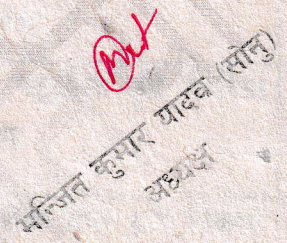 मन्जित कुमार यादव (सोनु)
अध्यक्ष